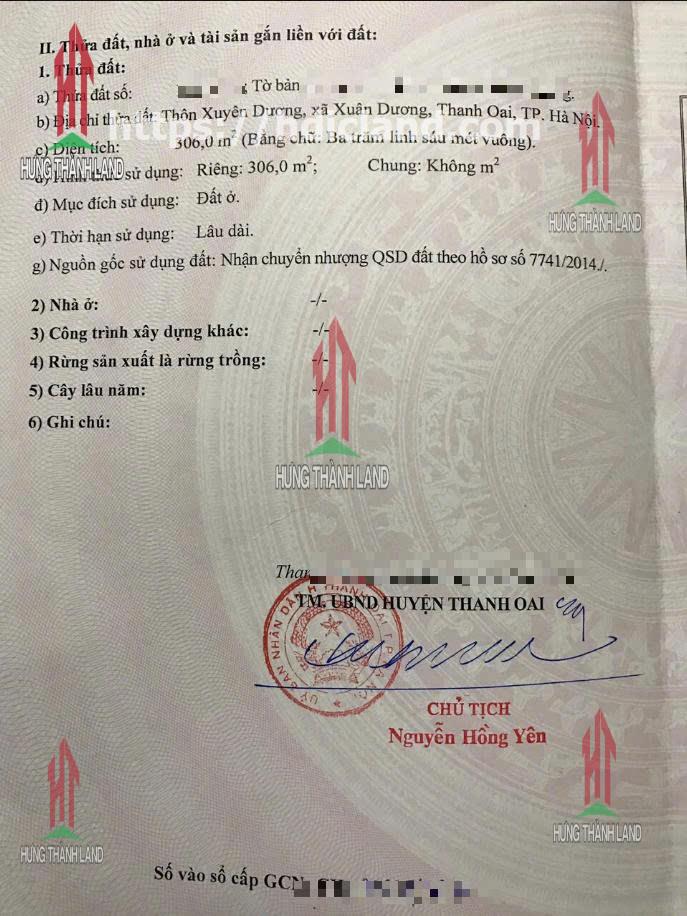 II. Thửa đất, nhà ở và tài sản gắn liền với đất:
1. Thửa đất:
a) Thửa đất số: Tờ bản
b) Địa chỉ thửa đất: Thôn Xuyên Dương, xã Xuân Dương, Thanh Oai, TP. Hà Nội.
c) Diện tích: 306,0 m² (Bằng chữ: Ba trăm linh sáu mét vuông).
sử dụng: Riêng: 306,0 m²; Chung: Không m²
đ) Mục đích sử dụng: Đất ở.
e) Thời hạn sử dụng: Lâu dài.
g) Nguồn gốc sử dụng đất: Nhận chuyển nhượng QSD đất theo hồ sơ số 7741/2014./.
2) Nhà ở: -/-
3) Công trình xây dựng khác: -/-
4) Rừng sản xuất là rừng trồng: -/-
5) Cây lâu năm: -/-
6) Ghi chú:
TM. UBND HUYỆN THANH OAI
CHỦ TỊCH
Nguyễn Hồng Yên
Số vào sổ cấp GCN
HƯNG THÀNH LAND
HƯNG THÀNH LAND
HƯNG THÀNH LAND
HƯNG THÀNH LAND
HƯNG THÀNH LAND
ỦY BAN NHÂN DÂN H THANH OAI T.P HÀ NỘI